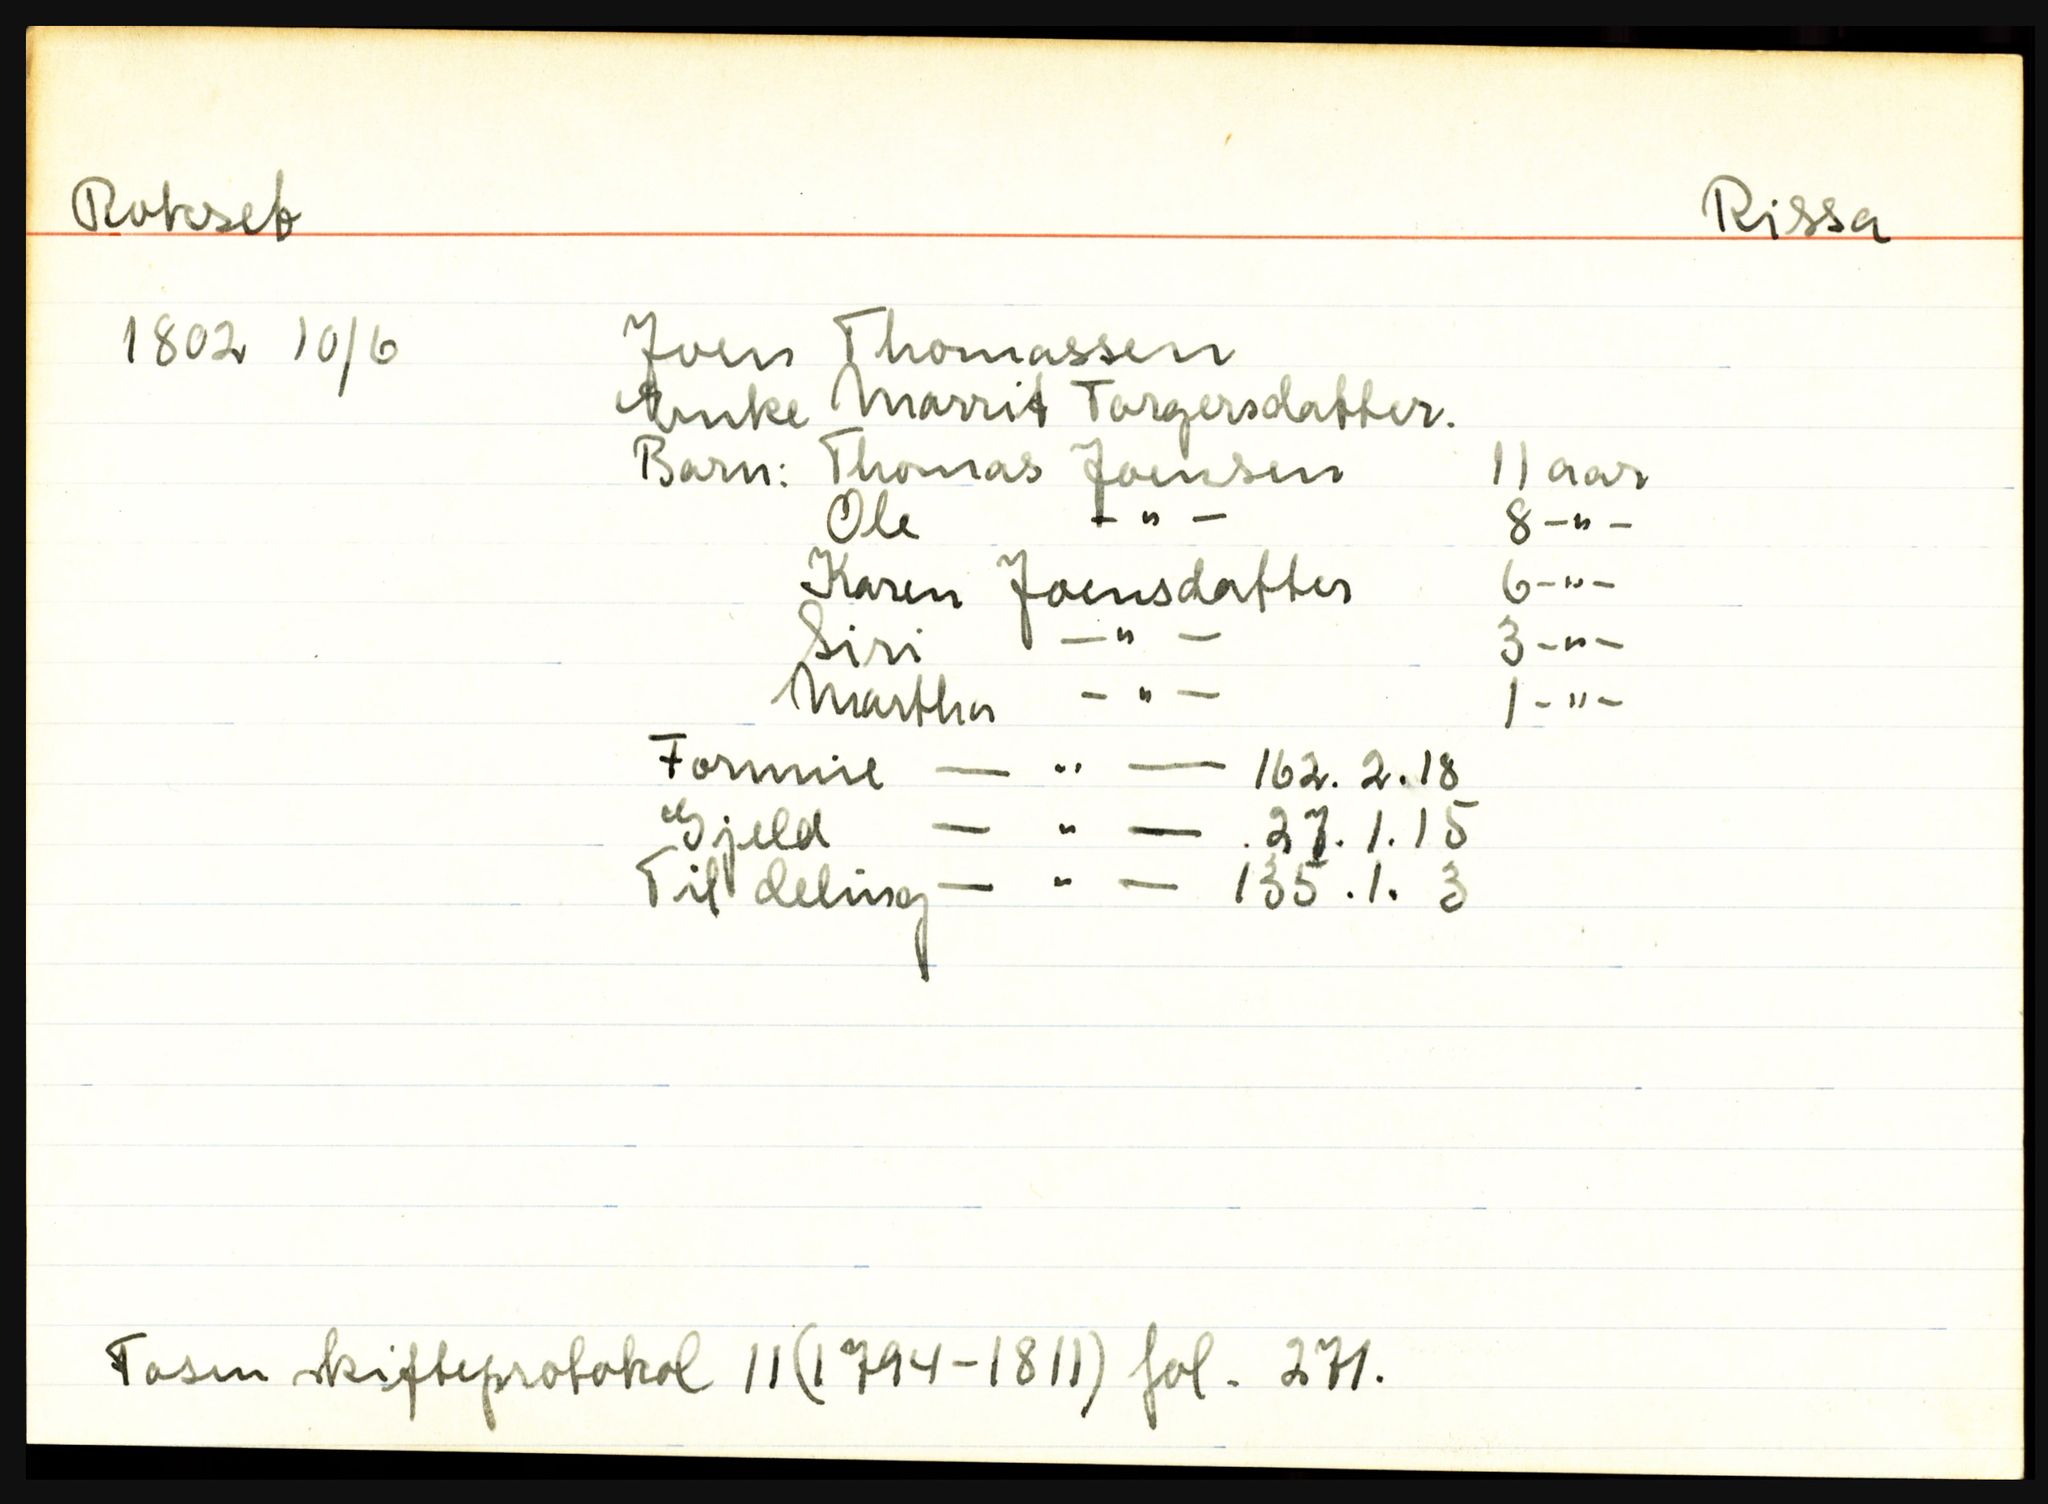 Rokseb Rissa
1802 10/6 Joen Thomassen
Enke Marrit Torgersdatter.
Barn: Thomas Joensen 11 aar
Ole - " - 8 - " -
Karen Joensdatter 6 - " -
Siri - " - 3 - " -
Martha - " - 1 - " -
Formue — " — 162. 2. 18
Gjeld — " — 27. 1. 15
Til deling — " — 135. 1. 3
Fosen skifteprotokol 11 (1794-1811) fol. 271.